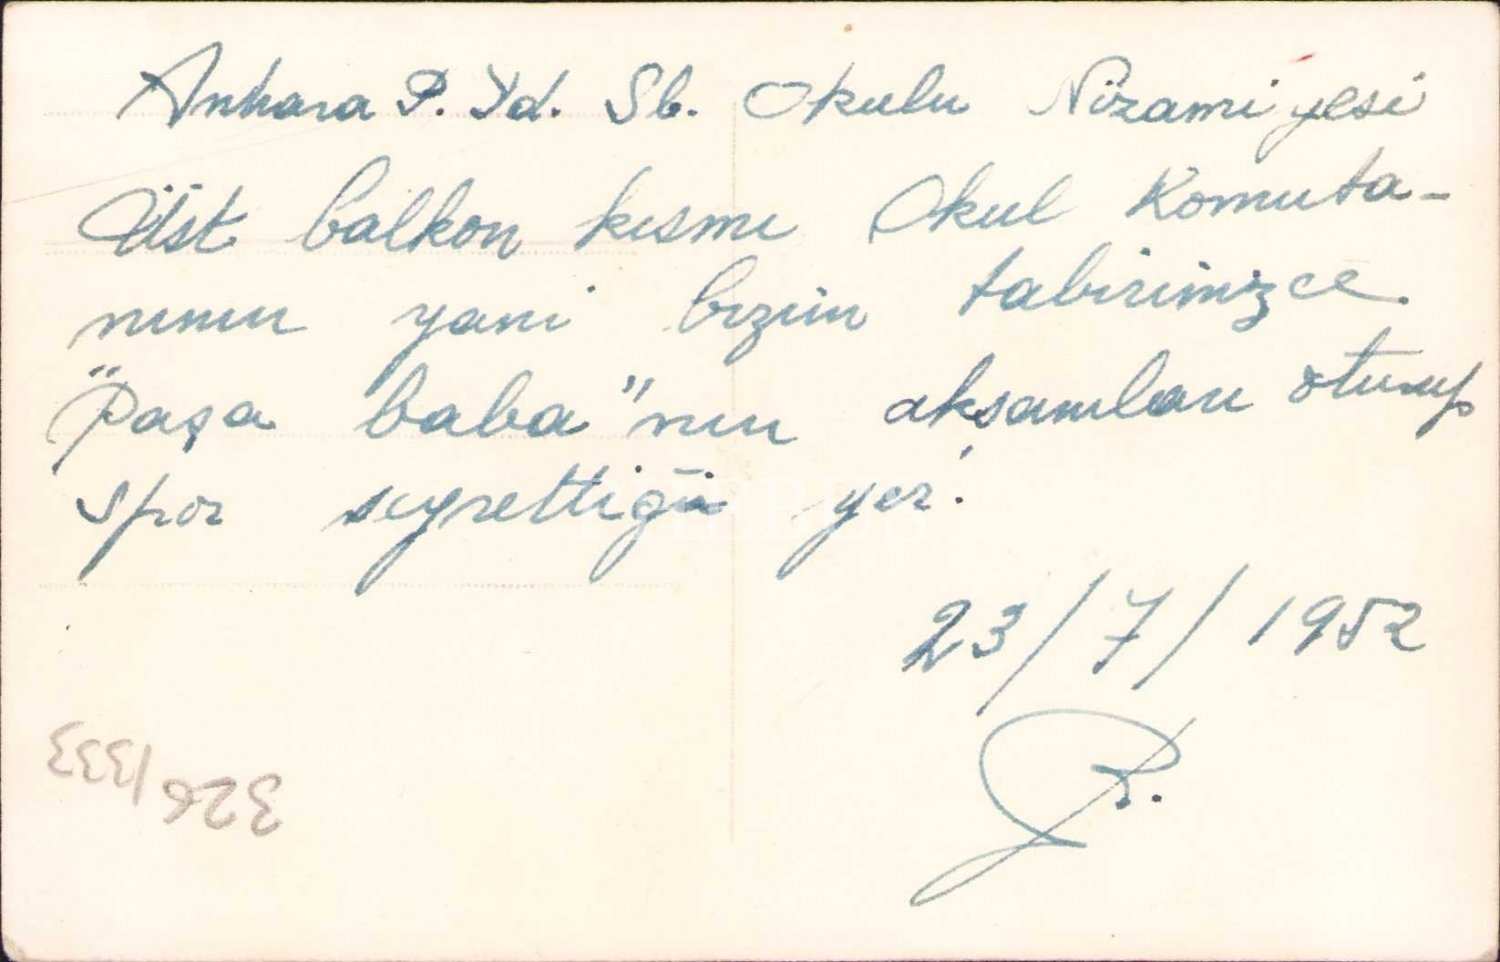 Ankara P. Yd. Sb. Okulu Nizamiyesi
Üst balkon kısmı Okul Komuta-
nının yani bizim tabirimizce
"Paşa baba"nın akşamları oturup
spor seyrettiği yer.
23/7/1952
R.
326/1333
PHEBUS